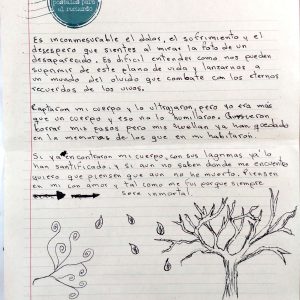 postales para
el recuerdo
Es inconmesurable el dolor, el sufrimiento y el
desespero que sientes al mirar la foto de un
desaparecido. Es difícil entender como nos pueden
suprimir de este plano de vida y lanzarnos a
un mundo del olvido que combate con los eternos
recuerdos de los vivos.
Raptaron mi cuerpo y lo ultrajaron, pero yo era más
que un cuerpo y eso no lo humillaron. Quisieron
borrar mis pasos pero mis huellas ya han quedado
en la memorias de los que en mi habitaron.
Si ya encontraron mi cuerpo, con sus lagrimas ya lo
han santificado, y si aun no saben donde me encuentro
quiero que piensen que aun no he muerto. Piensen
en mi con amor y tal como me fui porque siempre
sere inmortal.